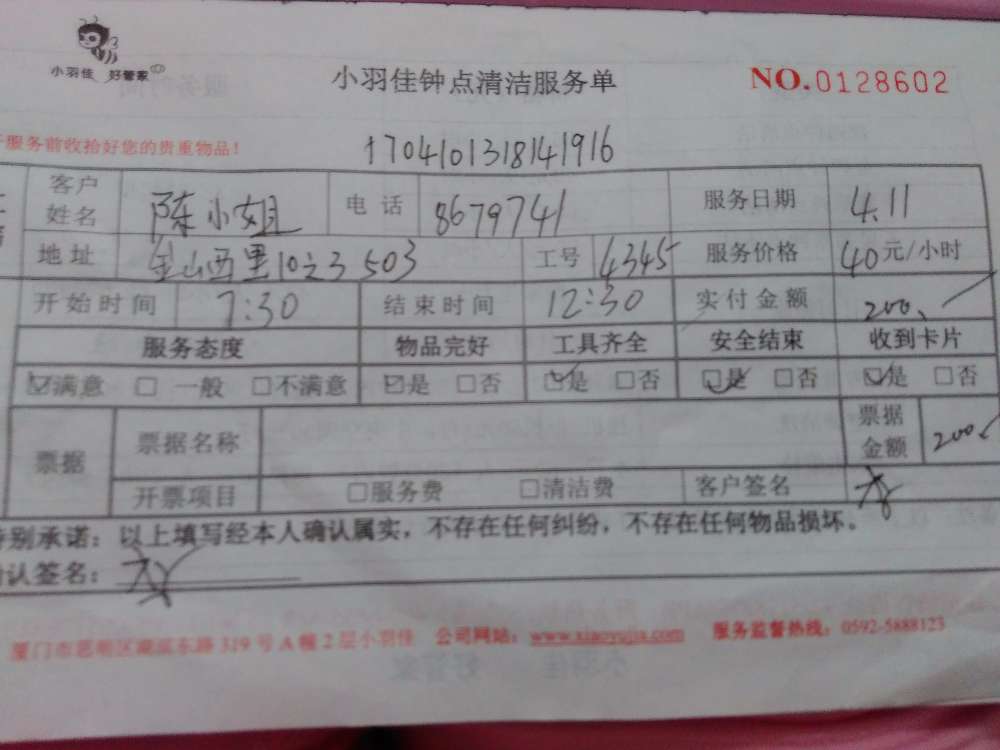 小羽佳 好管家
小羽佳钟点清洁服务单
NO.0128602
服务前收拾好您的贵重物品!
1704101318141916
客户姓名 陈小姐 电话 8679741 服务日期 4.11
地址 金山西里10之3 503 工号 4345 服务价格 40元/小时
开始时间 7:30 结束时间 12:30 实付金额 200
服务态度 物品完好 工具齐全 安全结束 收到卡片
☑满意 □一般 □不满意 ☑是 □否 ☑是 □否 ☑是 □否 ☑是 □否
票据 票据名称 票据金额 200
开票项目 □服务费 □清洁费 客户签名
特别承诺：以上填写经本人确认属实，不存在任何纠纷，不存在任何物品损坏。
确认签名：
厦门市思明区 东路319号A幢2层小羽佳 公司网站：www.xiaoyujia.com 服务监督热线：0592-5888123